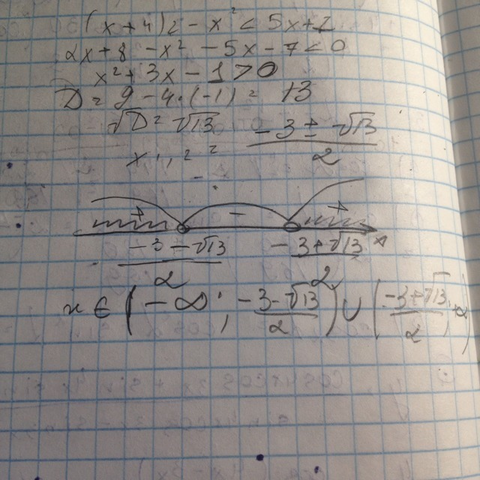 (x+4)2 - x² < 5x+7
2x+8 - x² - 5x - 7 < 0
x² + 3x - 1 > 0
D = 9 - 4·(-1) = 13
√D = √13
x₁,₂ = (-3 ± √13)/2
+ - + x
(-3-√13)/2 (-3+√13)/2
x ∈ (-∞; (-3-√13)/2) ∪ ((-3+√13)/2;